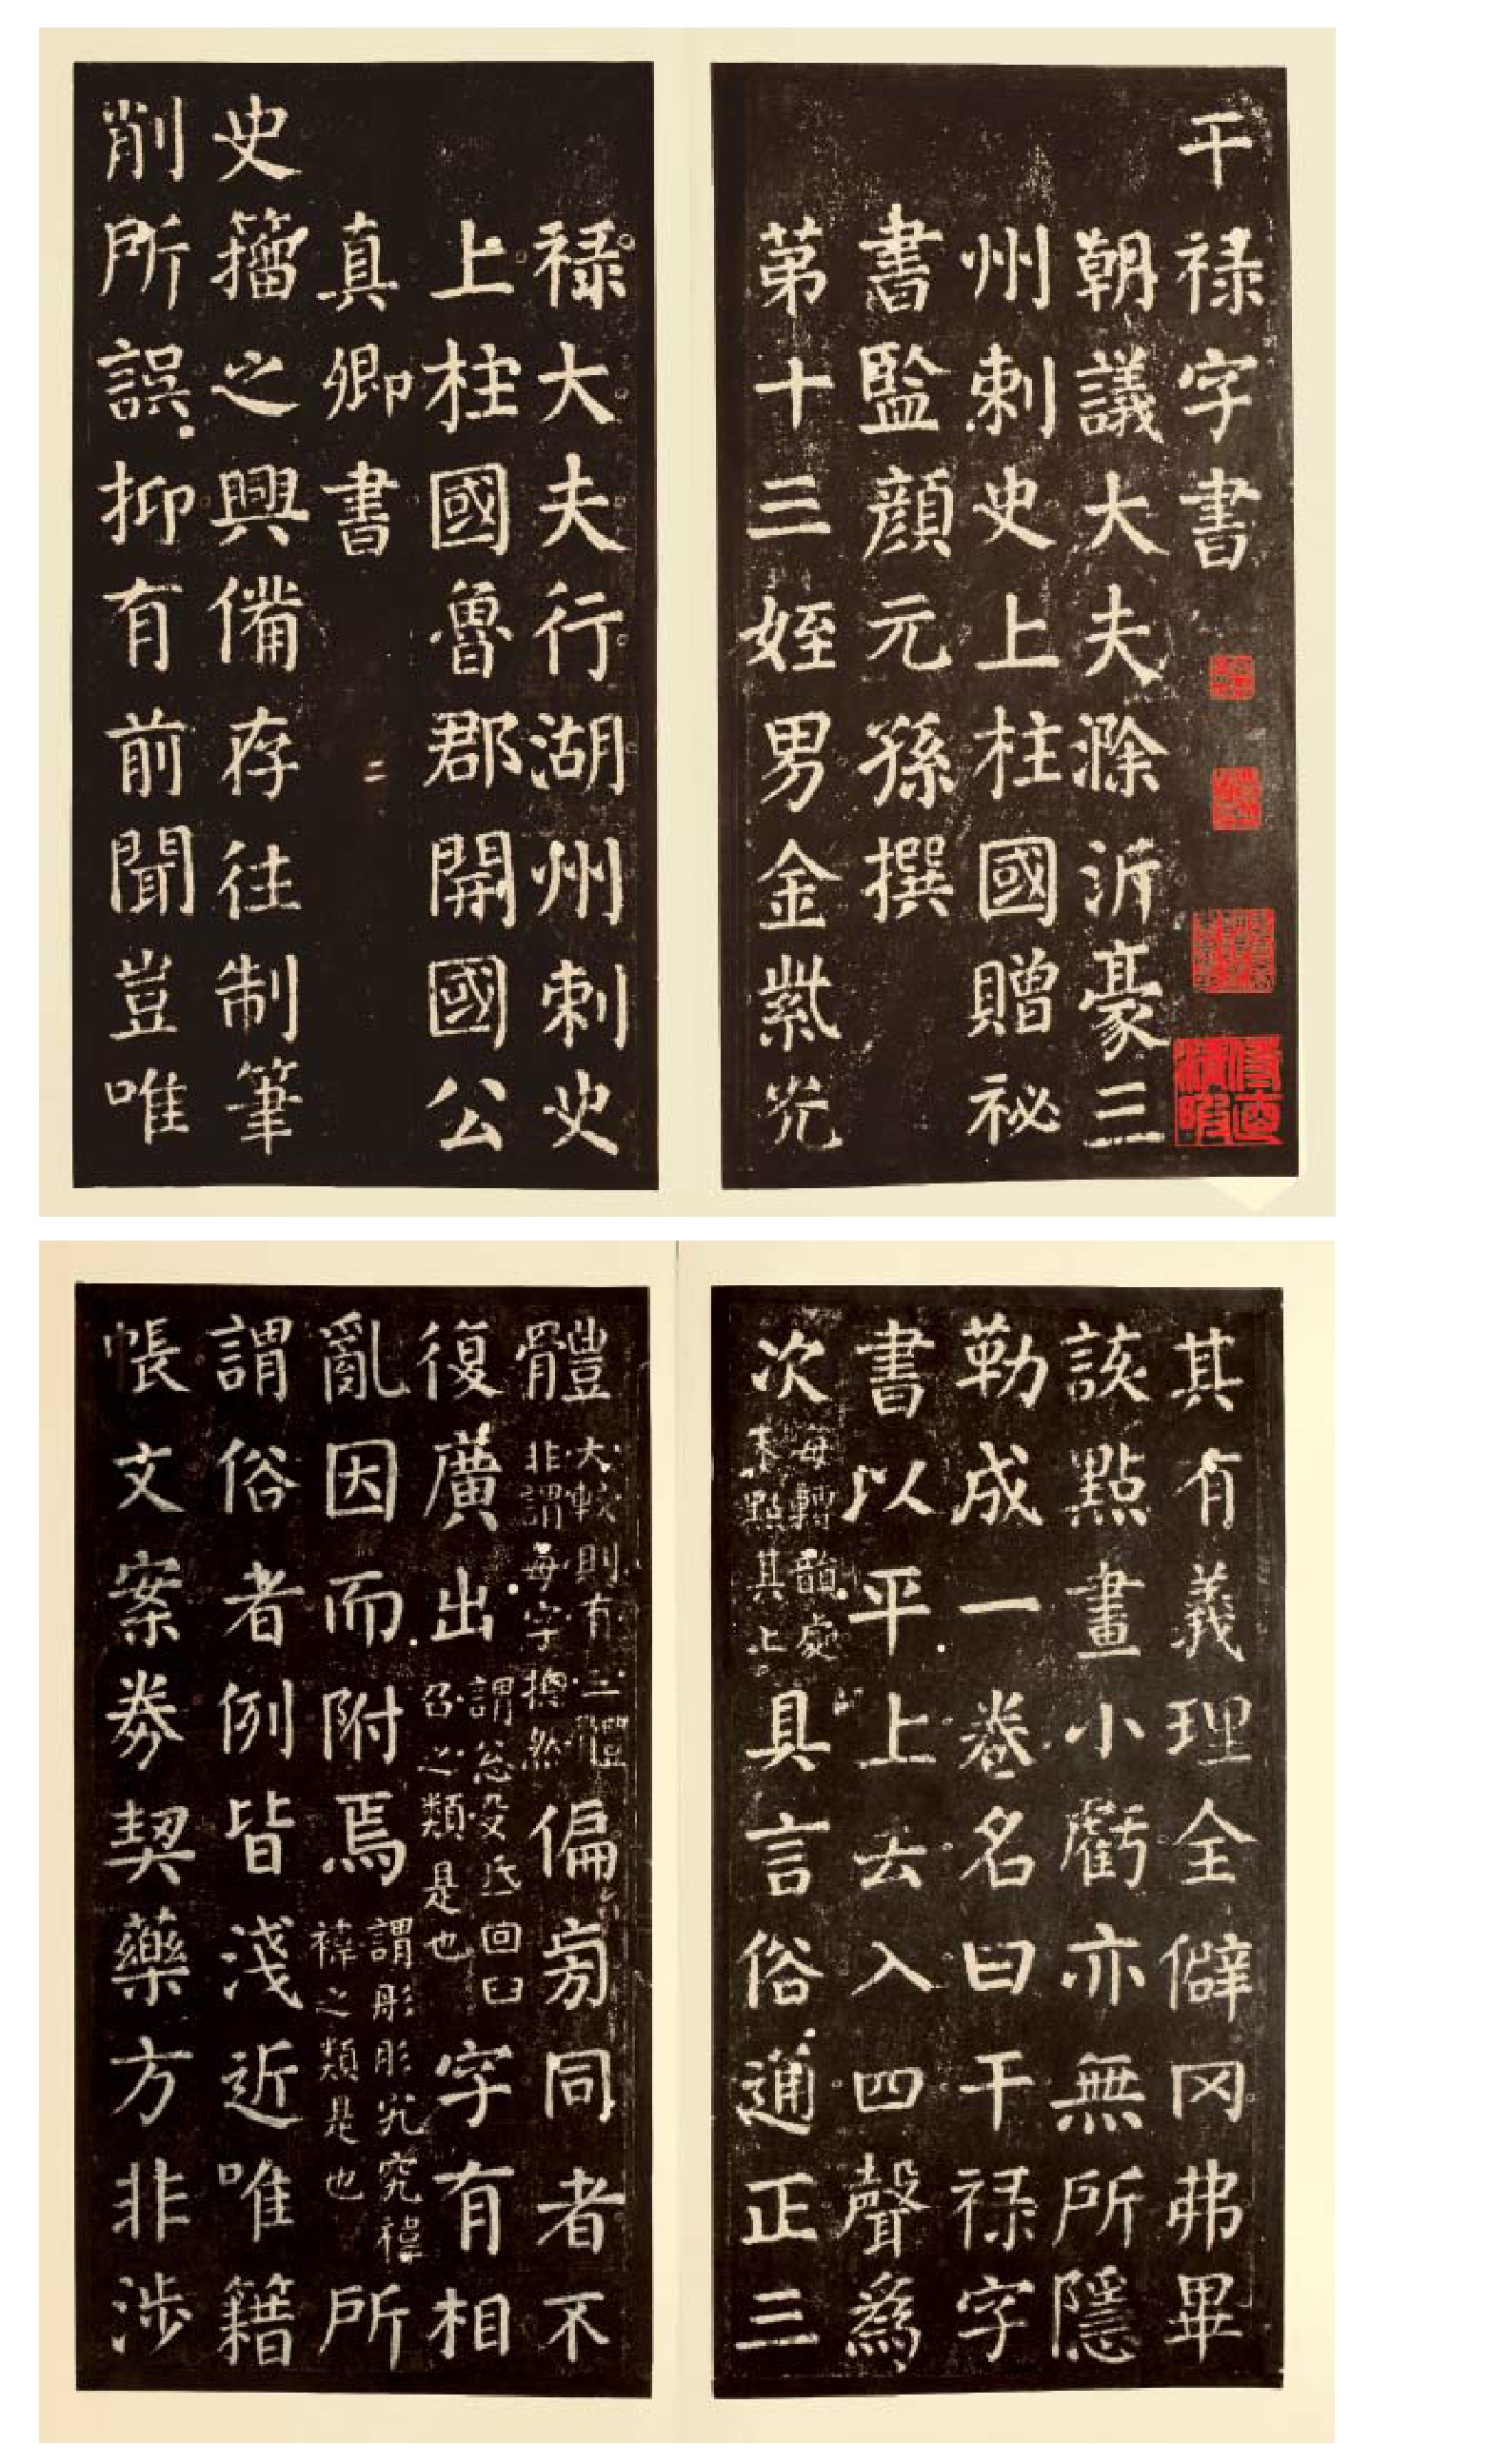 干禄字書
朝議大夫滁沂豪三
州刺史上柱國贈祕
書監顔元孫撰
苐十三姪男金紫光
禄大夫行湖州刺史
上柱國魯郡開國公
真卿書
史籀之興備存往制筆
削所誤抑有前聞豈唯
其有義理全僻罔弗畢
該點畫小虧亦無所隱
勒成一卷名曰干禄字
書以平上去入四聲爲
次每轉韻處朱點其上具言俗通正三
體大較則有三體非謂每字揔然偏旁同者不
復廣出謂忩殳氐回臼召之類是也字有相
亂因而附焉謂彤肜宄究禕褘之類是也所
謂俗者例皆淺近唯籍
帳文案券契藥方非涉